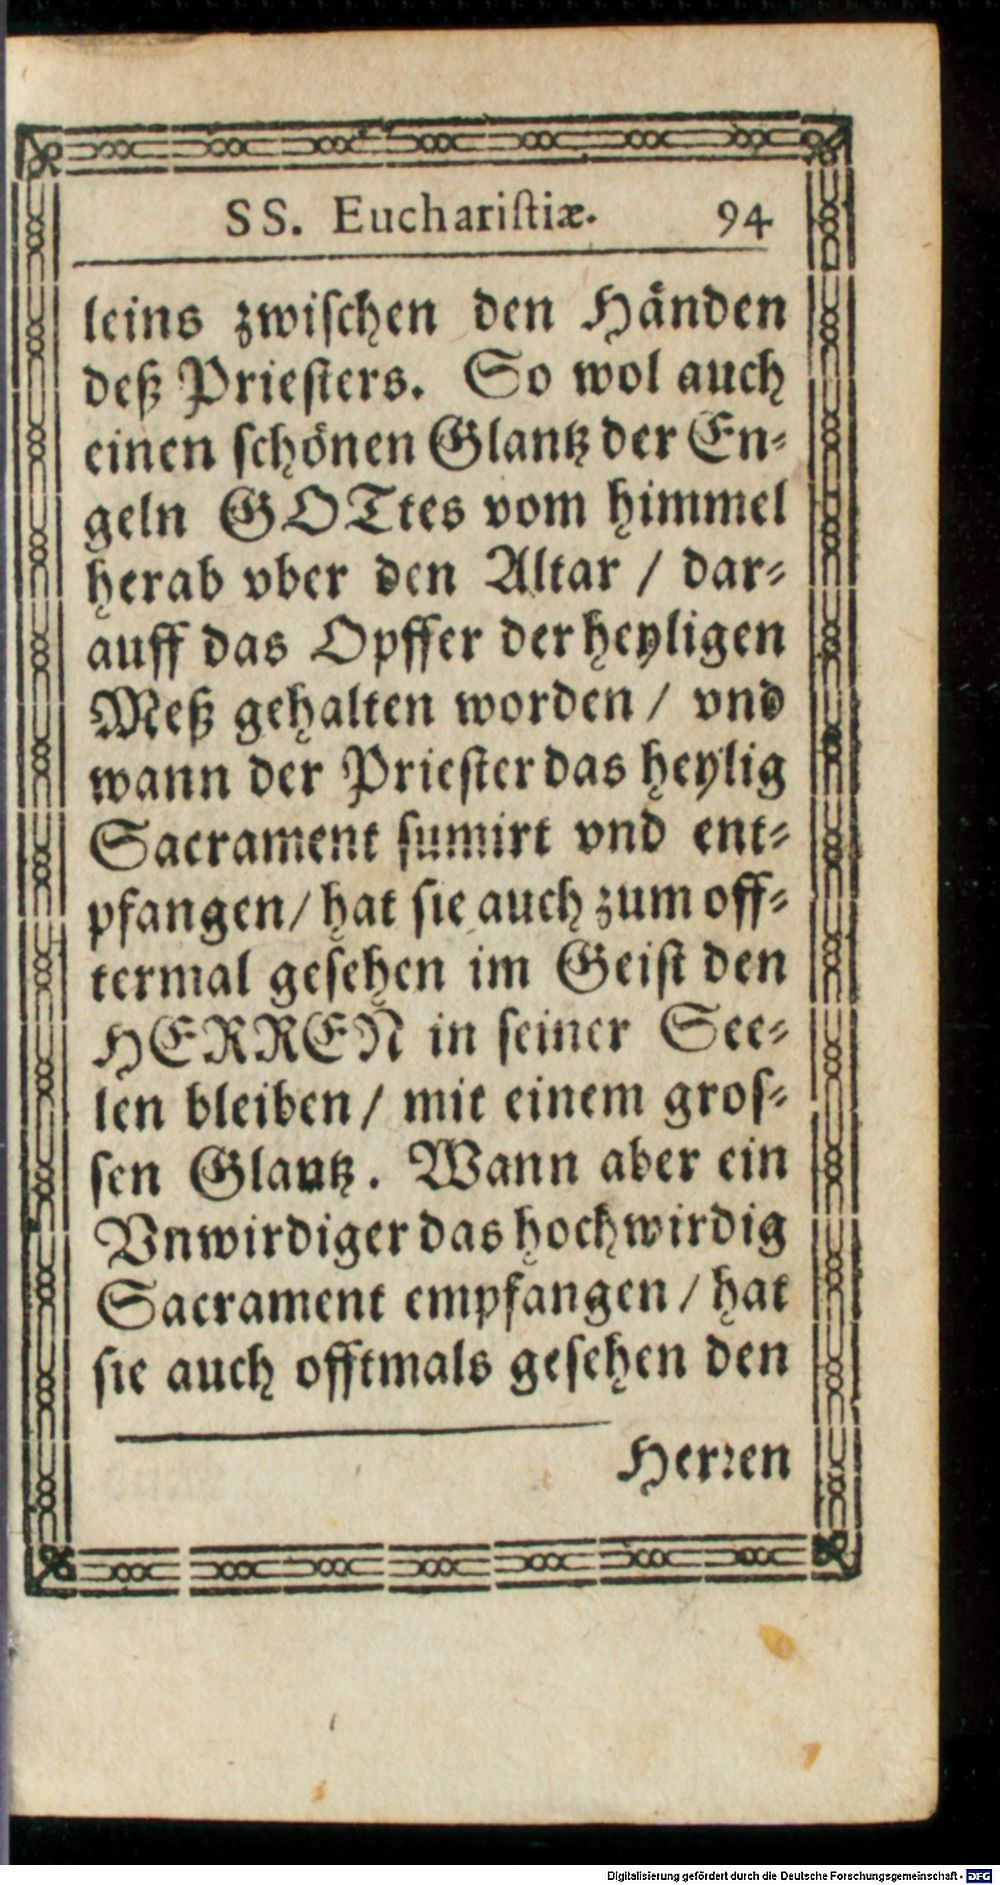 SS. Euchariſtiæ. 94
leins zwiſchen den Händen
deß Prieſters. So wol auch
einen ſchönen Glantz der En-
geln GOTtes vom himmel
herab vber den Altar / dar-
auff das Opffer der heyligen
Meß gehalten worden / vnd
wann der Prieſter das heylig
Sacrament ſumirt vnd ent-
pfangen / hat ſie auch zum off-
termal geſehen im Geiſt den
HERREN in ſeiner See-
len bleiben / mit einem groſ-
ſen Glantz. Wann aber ein
Vnwirdiger das hochwirdig
Sacrament empfangen / hat
ſie auch offtmals geſehen den
Herꝛen
Digitalisierung gefördert durch die Deutsche Forschungsgemeinschaft - DFG